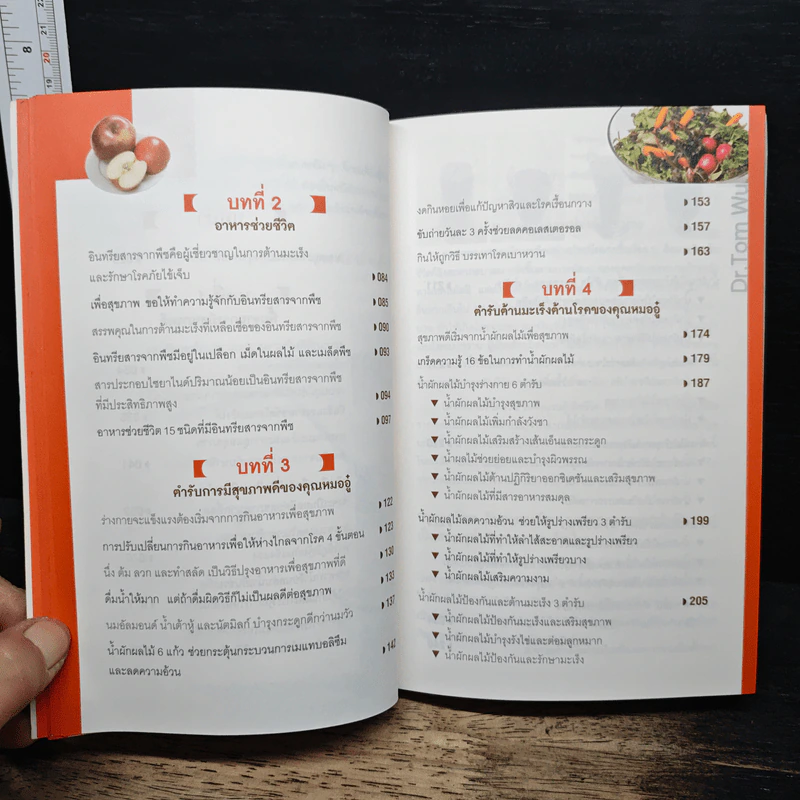 บทที่ 2
อาหารช่วยชีวิต
อินทรียสารจากพืชคือผู้เชี่ยวชาญในการต้านมะเร็ง
และรักษาโรคภัยไข้เจ็บ 084
เพื่อสุขภาพ ขอให้ทำความรู้จักกับอินทรียสารจากพืช 085
สรรพคุณในการต้านมะเร็งที่เหลือเชื่อของอินทรียสารจากพืช 090
อินทรียสารจากพืชมีอยู่ในเปลือก เม็ดในผลไม้ และเมล็ดพืช 093
สารประกอบไซยาไนด์ปริมาณน้อยเป็นอินทรียสารจากพืช
ที่มีประสิทธิภาพสูง 094
อาหารช่วยชีวิต 15 ชนิดที่มีอินทรียสารจากพืช 097
บทที่ 3
ตำรับการมีสุขภาพดีของคุณหมออู๋
ร่างกายจะแข็งแรงต้องเริ่มจากการกินอาหารเพื่อสุขภาพ 122
การปรับเปลี่ยนการกินอาหารเพื่อให้ห่างไกลจากโรค 4 ขั้นตอน 123
นึ่ง ต้ม ลวก และทำสลัด เป็นวิธีปรุงอาหารเพื่อสุขภาพที่ดี 130
ดื่มน้ำให้มาก แต่ถ้าดื่มผิดวิธีก็ไม่เป็นผลดีต่อสุขภาพ 133
นมอัลมอนด์ น้ำเต้าหู้ และนัตมิลก์ บำรุงกระดูกดีกว่านมวัว 137
น้ำผักผลไม้ 6 แก้ว ช่วยกระตุ้นกระบวนการเมแทบอลิซึม
และลดความอ้วน 142
งดกินหอยเพื่อแก้ปัญหาสิวและโรคเรื้อนกวาง 153
ขับถ่ายวันละ 3 ครั้งช่วยลดคอเลสเตอรอล 157
กินให้ถูกวิธี บรรเทาโรคเบาหวาน 163
บทที่ 4
ตำรับต้านมะเร็งต้านโรคของคุณหมออู๋
สุขภาพดีเริ่มจากน้ำผักผลไม้เพื่อสุขภาพ 174
เกร็ดความรู้ 16 ข้อในการทำน้ำผักผลไม้ 179
น้ำผักผลไม้บำรุงร่างกาย 6 ตำรับ 187
▼ น้ำผักผลไม้บำรุงสุขภาพ
▼ น้ำผักผลไม้เพิ่มกำลังวังชา
▼ น้ำผักผลไม้เสริมสร้างเส้นเอ็นและกระดูก
▼ น้ำผักผลไม้ช่วยย่อยและบำรุงผิวพรรณ
▼ น้ำผักผลไม้ต้านปฏิกิริยาออกซิเดชันและเสริมสุขภาพ
▼ น้ำผักผลไม้ที่มีสารอาหารสมดุล
น้ำผักผลไม้ลดความอ้วน ช่วยให้รูปร่างเพรียว 3 ตำรับ 199
▼ น้ำผักผลไม้ที่ทำให้ลำไส้สะอาดและรูปร่างเพรียว
▼ น้ำผักผลไม้ที่ทำให้รูปร่างเพรียวบาง
▼ น้ำผักผลไม้เสริมความงาม
น้ำผักผลไม้ป้องกันและต้านมะเร็ง 3 ตำรับ 205
▼ น้ำผักผลไม้ป้องกันมะเร็งและเสริมสุขภาพ
▼ น้ำผักผลไม้บำรุงรังไข่และต่อมลูกหมาก
▼ น้ำผักผลไม้ป้องกันและรักษามะเร็ง
Dr.Tom Wu